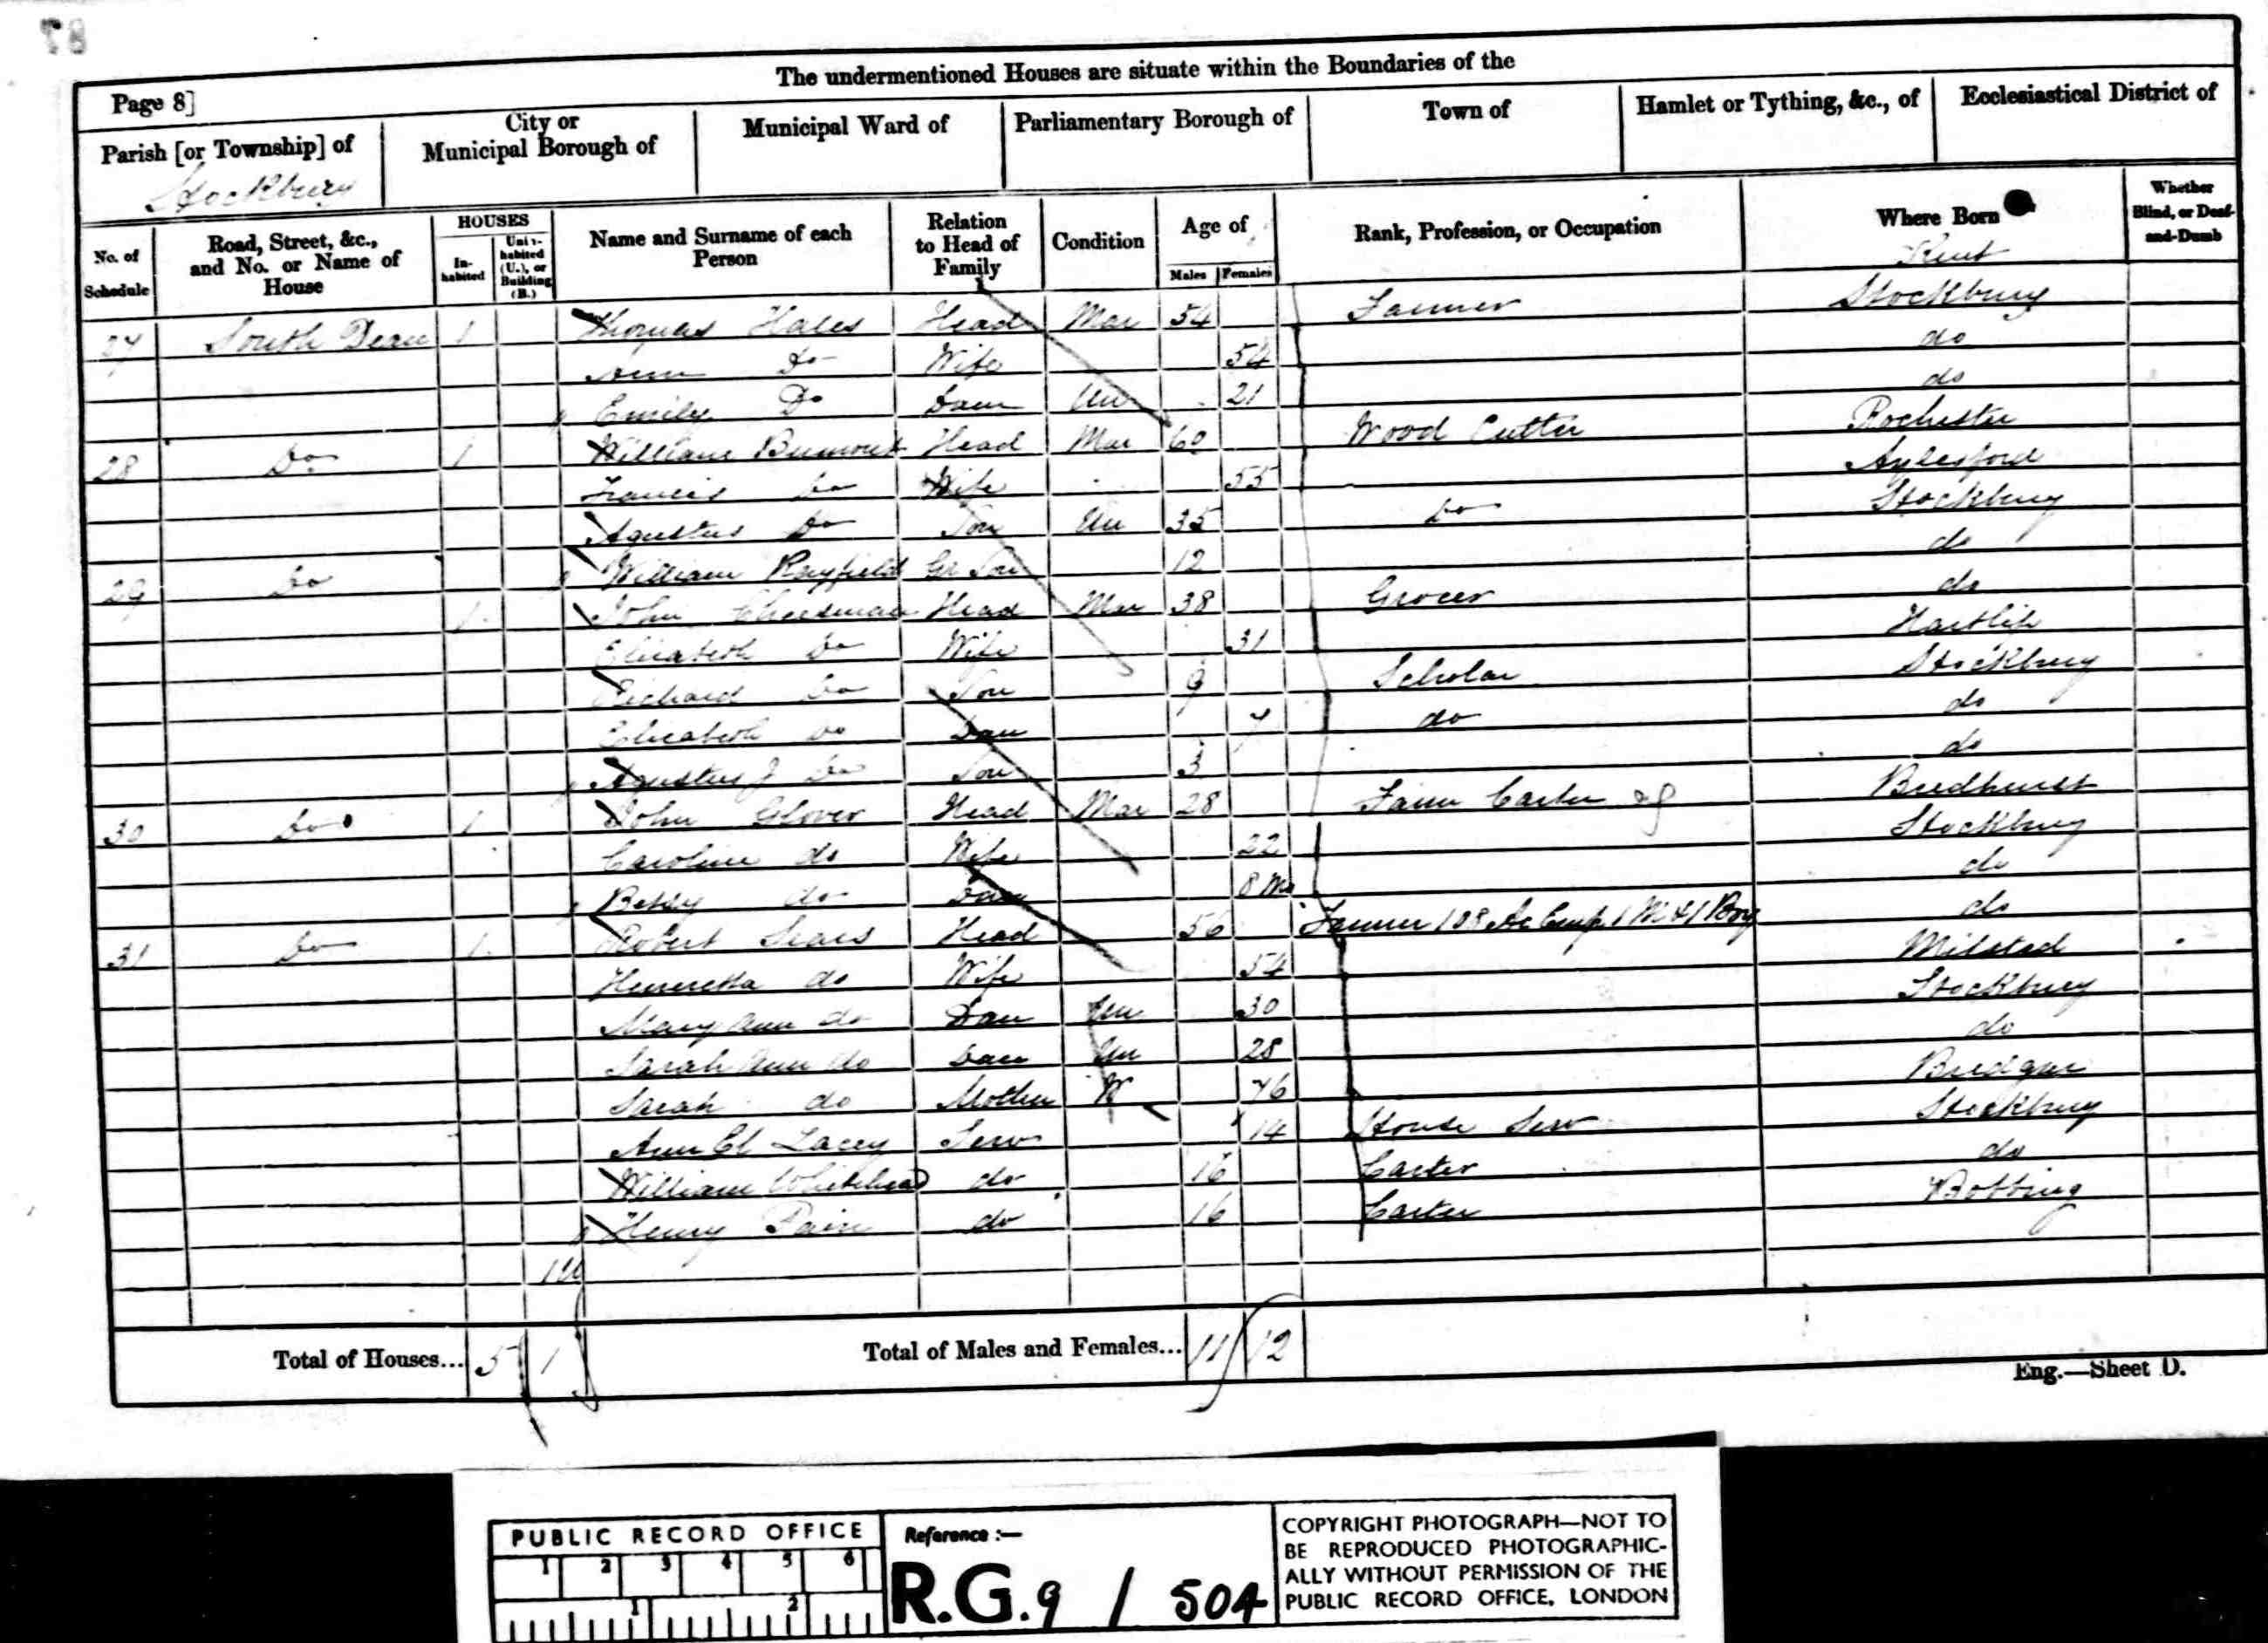 Page 8]
The undermentioned Houses are situate within the Boundaries of the
Parish [or Township] of
City or Municipal Borough of
Municipal Ward of
Parliamentary Borough of
Town of
Hamlet or Tything, &c., of
Ecclesiastical District of
Stockbury
No. of Schedule
Road, Street, &c., and No. or Name of House
HOUSES
In-habited
Uni-habited (U.), or Building (B.)
Name and Surname of each Person
Relation to Head of Family
Condition
Age of
Males
Females
Rank, Profession, or Occupation
Where Born
Whether Blind, or Deaf-and-Dumb
Kent
27 South Dean 1 Thomas Hales Head Mar 54 Farmer Stockbury
Ann Do Wife 54 do
Emily Do Daur Un 21 do
28 Do 1 William Head Mar 60 Wood Cutter Rochester
Francis Do Wife 55 Aylesford
Agustus Do Son Un 35 Do Stockbury
William Rayfield Gr Son 12 do
29 Do 1 John Cheesman Head Mar 38 Grocer do
Elizabeth Do Wife 31 Hartlip
Richard Do Son 9 Scholar Stockbury
Elizabeth Do Dau 7 do do
Agustus J Do Son 3 do
30 Do 1 John Glover Head Mar 28 Farm Carter Bredhurst
Caroline do Wife 22 Stockbury
Betsy do Dau 8 Mo do
31 Do 1 Robert Sears Head 56 Farmer 108 Ac Emp 1 M & 1 Boy do
Henrietta do Wife 54 Milsted
Mary Ann do Dau Un 30 Stockbury
Sarah Ann do Dau Un 28 do
Sarah do Mother W 76 Bredgar
Ann El Lacey Serv 14 House Serv Stockbury
William Whitehead do 16 Carter do
Henry Pain do 16 Carter Bobbing
1U
Total of Houses... 5 1
Total of Males and Females... 11 12
Eng.—Sheet D.
PUBLIC RECORD OFFICE
1 2 3 4 5 6
1 2
Reference :—
R.G. 9 / 504
COPYRIGHT PHOTOGRAPH—NOT TO
BE REPRODUCED PHOTOGRAPHIC-
ALLY WITHOUT PERMISSION OF THE
PUBLIC RECORD OFFICE, LONDON